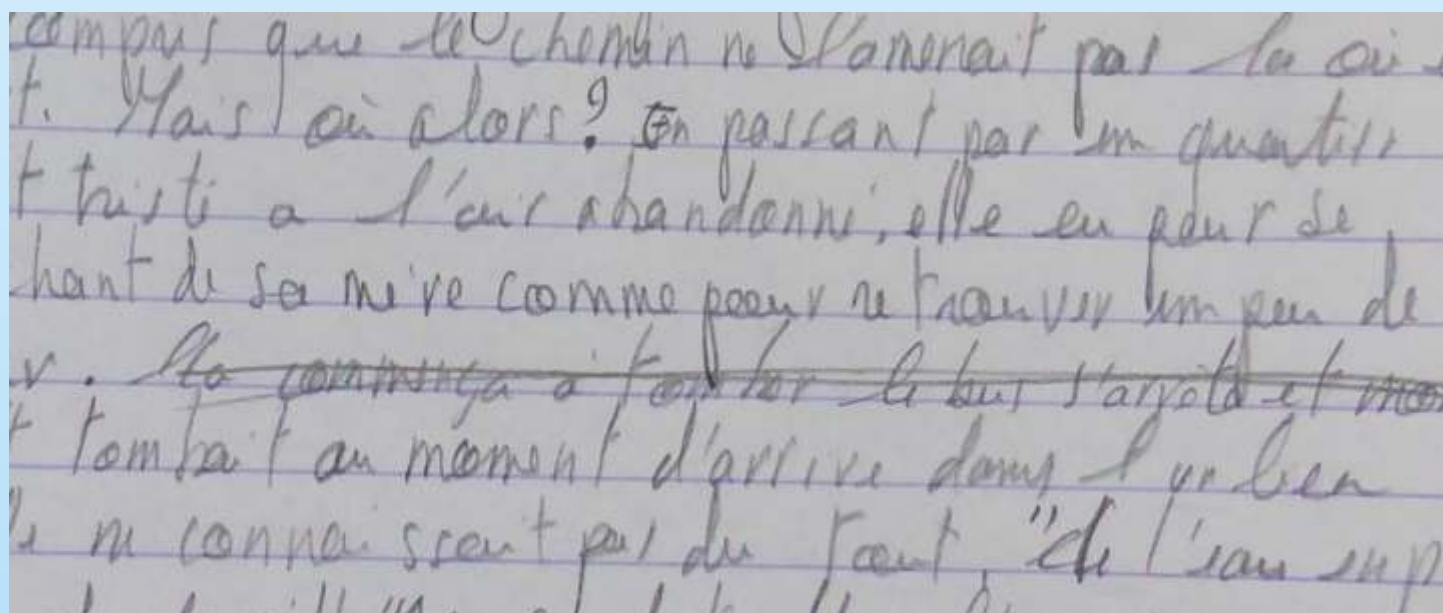 compris que le chemin ne l'amenait pas la où
t. Mais où alors? En passant par un quartier
t triste a l'air abandonné, elle eu peur se
chant de sa mère comme pour retrouver un peu de
r. commença à tomber le bus s'arrêta et
t tombait au moment d'arrive dans un lieu
ne connaissait pas du tout, "de l'eau